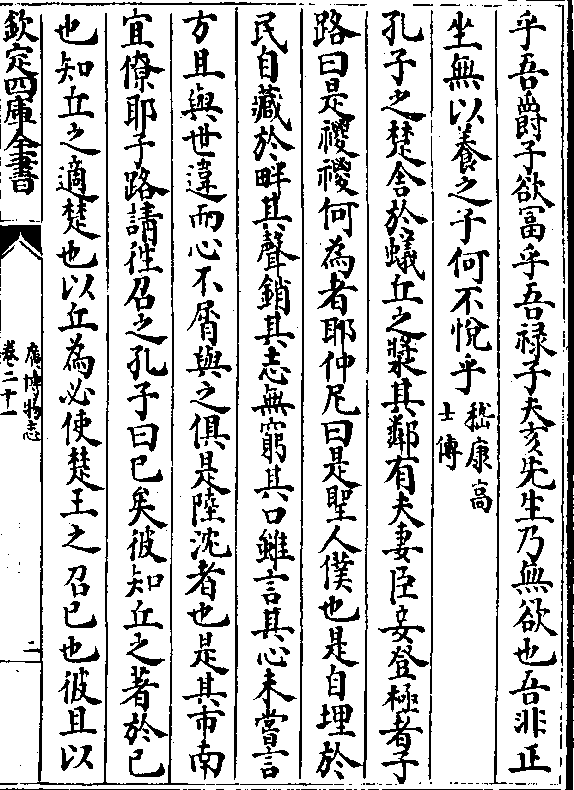 乎吾爵子欲冨乎吾禄子夫亥先生乃無欲也吾非正
坐無以養之子何不悅乎嵇康髙士傳
孔子之楚舎於蟻丘之漿其鄰有夫妻臣妾登極者子
路曰是稯稯何為者耶仲尼曰是聖人僕也是自埋於
民自藏於畔其聲銷其志無窮其口雖言其心未嘗言
方且與世違而心不屑與之俱是陸沈者也是其市南
宜僚耶子路請徃召之孔子曰已矣彼知丘之著於已
也知丘之適楚也以丘為必使楚王之召已也彼且以
欽定四庫全書
廣博物志
卷二十一
二